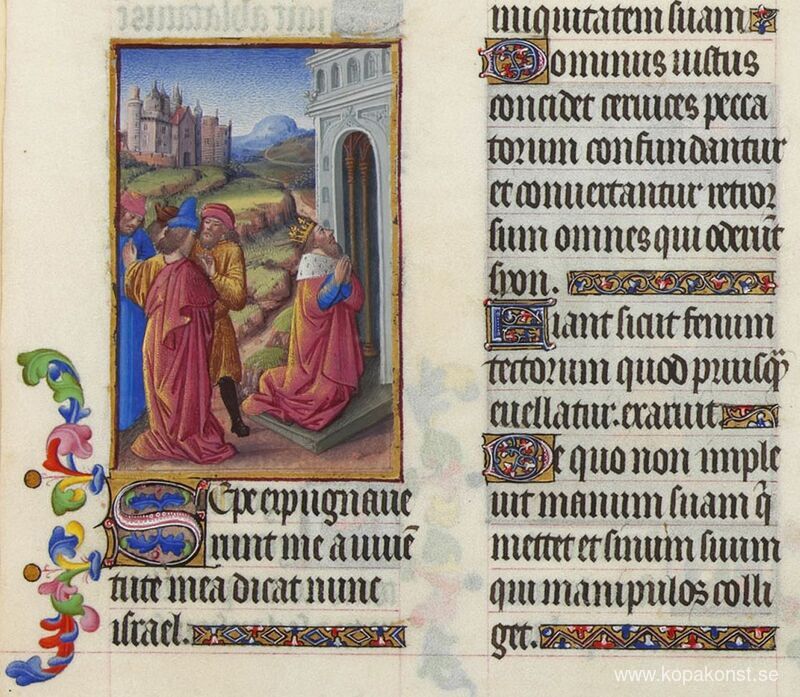 Sepe expugnave
runt me a iuve͂
tute mea dicat nunc
israel.
iniquitatem suam
Dominus iustus
concidet cervices pecca
torum confundantur
et convertantur retror
sum omnes qui oderu͂t
syon.
Fiant sicut fenum
tectorum quod priusq͂
evellatur. exaruit
De quo non imple
vit manum suam q͂
mettet et sinum suum
qui manipulos colli
get.
www.kopakonst.se